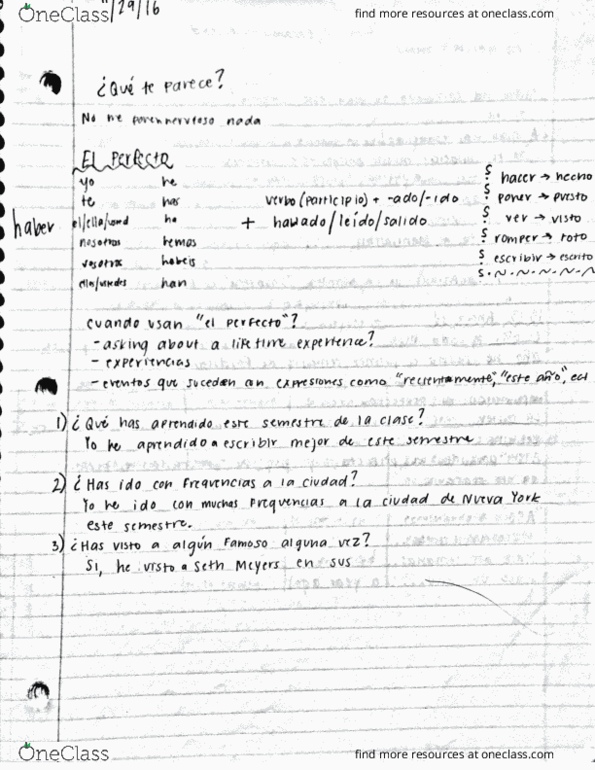 OneClass
find more resources at oneclass.com
11/29/16
¿Qué te parece?
No me ponen nervioso nada
El Perfecto
haber
yo he
te has
el/ella/usted ha
nosotros hemos
vosotros habeis
ellos/ustedes han
+
verbo (participio) + -ado/-ido
hablado/leído/salido
hacer → hecho
poner → puesto
ver → visto
romper → roto
escribir → escrito
cuando usan "el perfecto"?
- asking about a life time experience?
- experiencias
- eventos que suceden an expresiones como "recientemente", "este año", ect
1) ¿Qué has aprendido este semestre de la clase?
Yo he aprendido a escribir mejor de este semestre
2) ¿Has ido con frequencias a la ciudad?
Yo he ido con muchas frequencias a la ciudad de Nueva York
este semestre.
3) ¿Has visto a algún famoso alguna vez?
Si, he visto a Seth Meyers en sus
OneClass
find more resources at oneclass.com